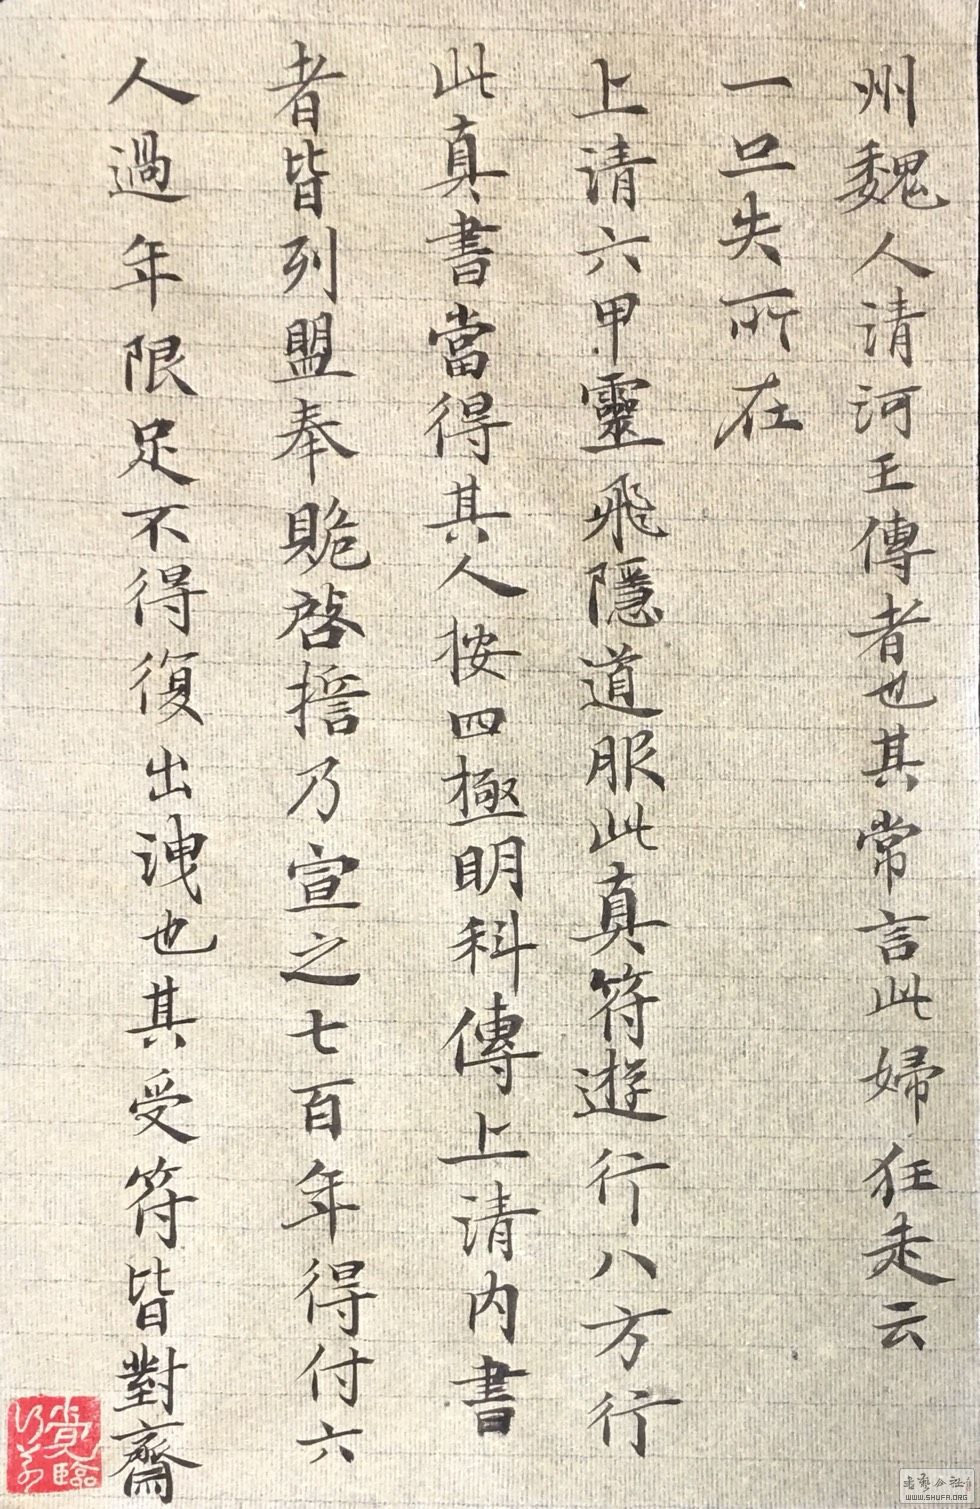 州魏人清河王傳者也其常言此婦狂走云
一旦失所在
上清六甲靈飛隱道服此真符遊行八方行
此真書當得其人按四極明科傳上清內書
者皆列盟奉貽啓誓乃宣之七百年得付六
人過年限足不得復出洩也其受符皆對齋
書法公社
WWW.SHUFA.ORG